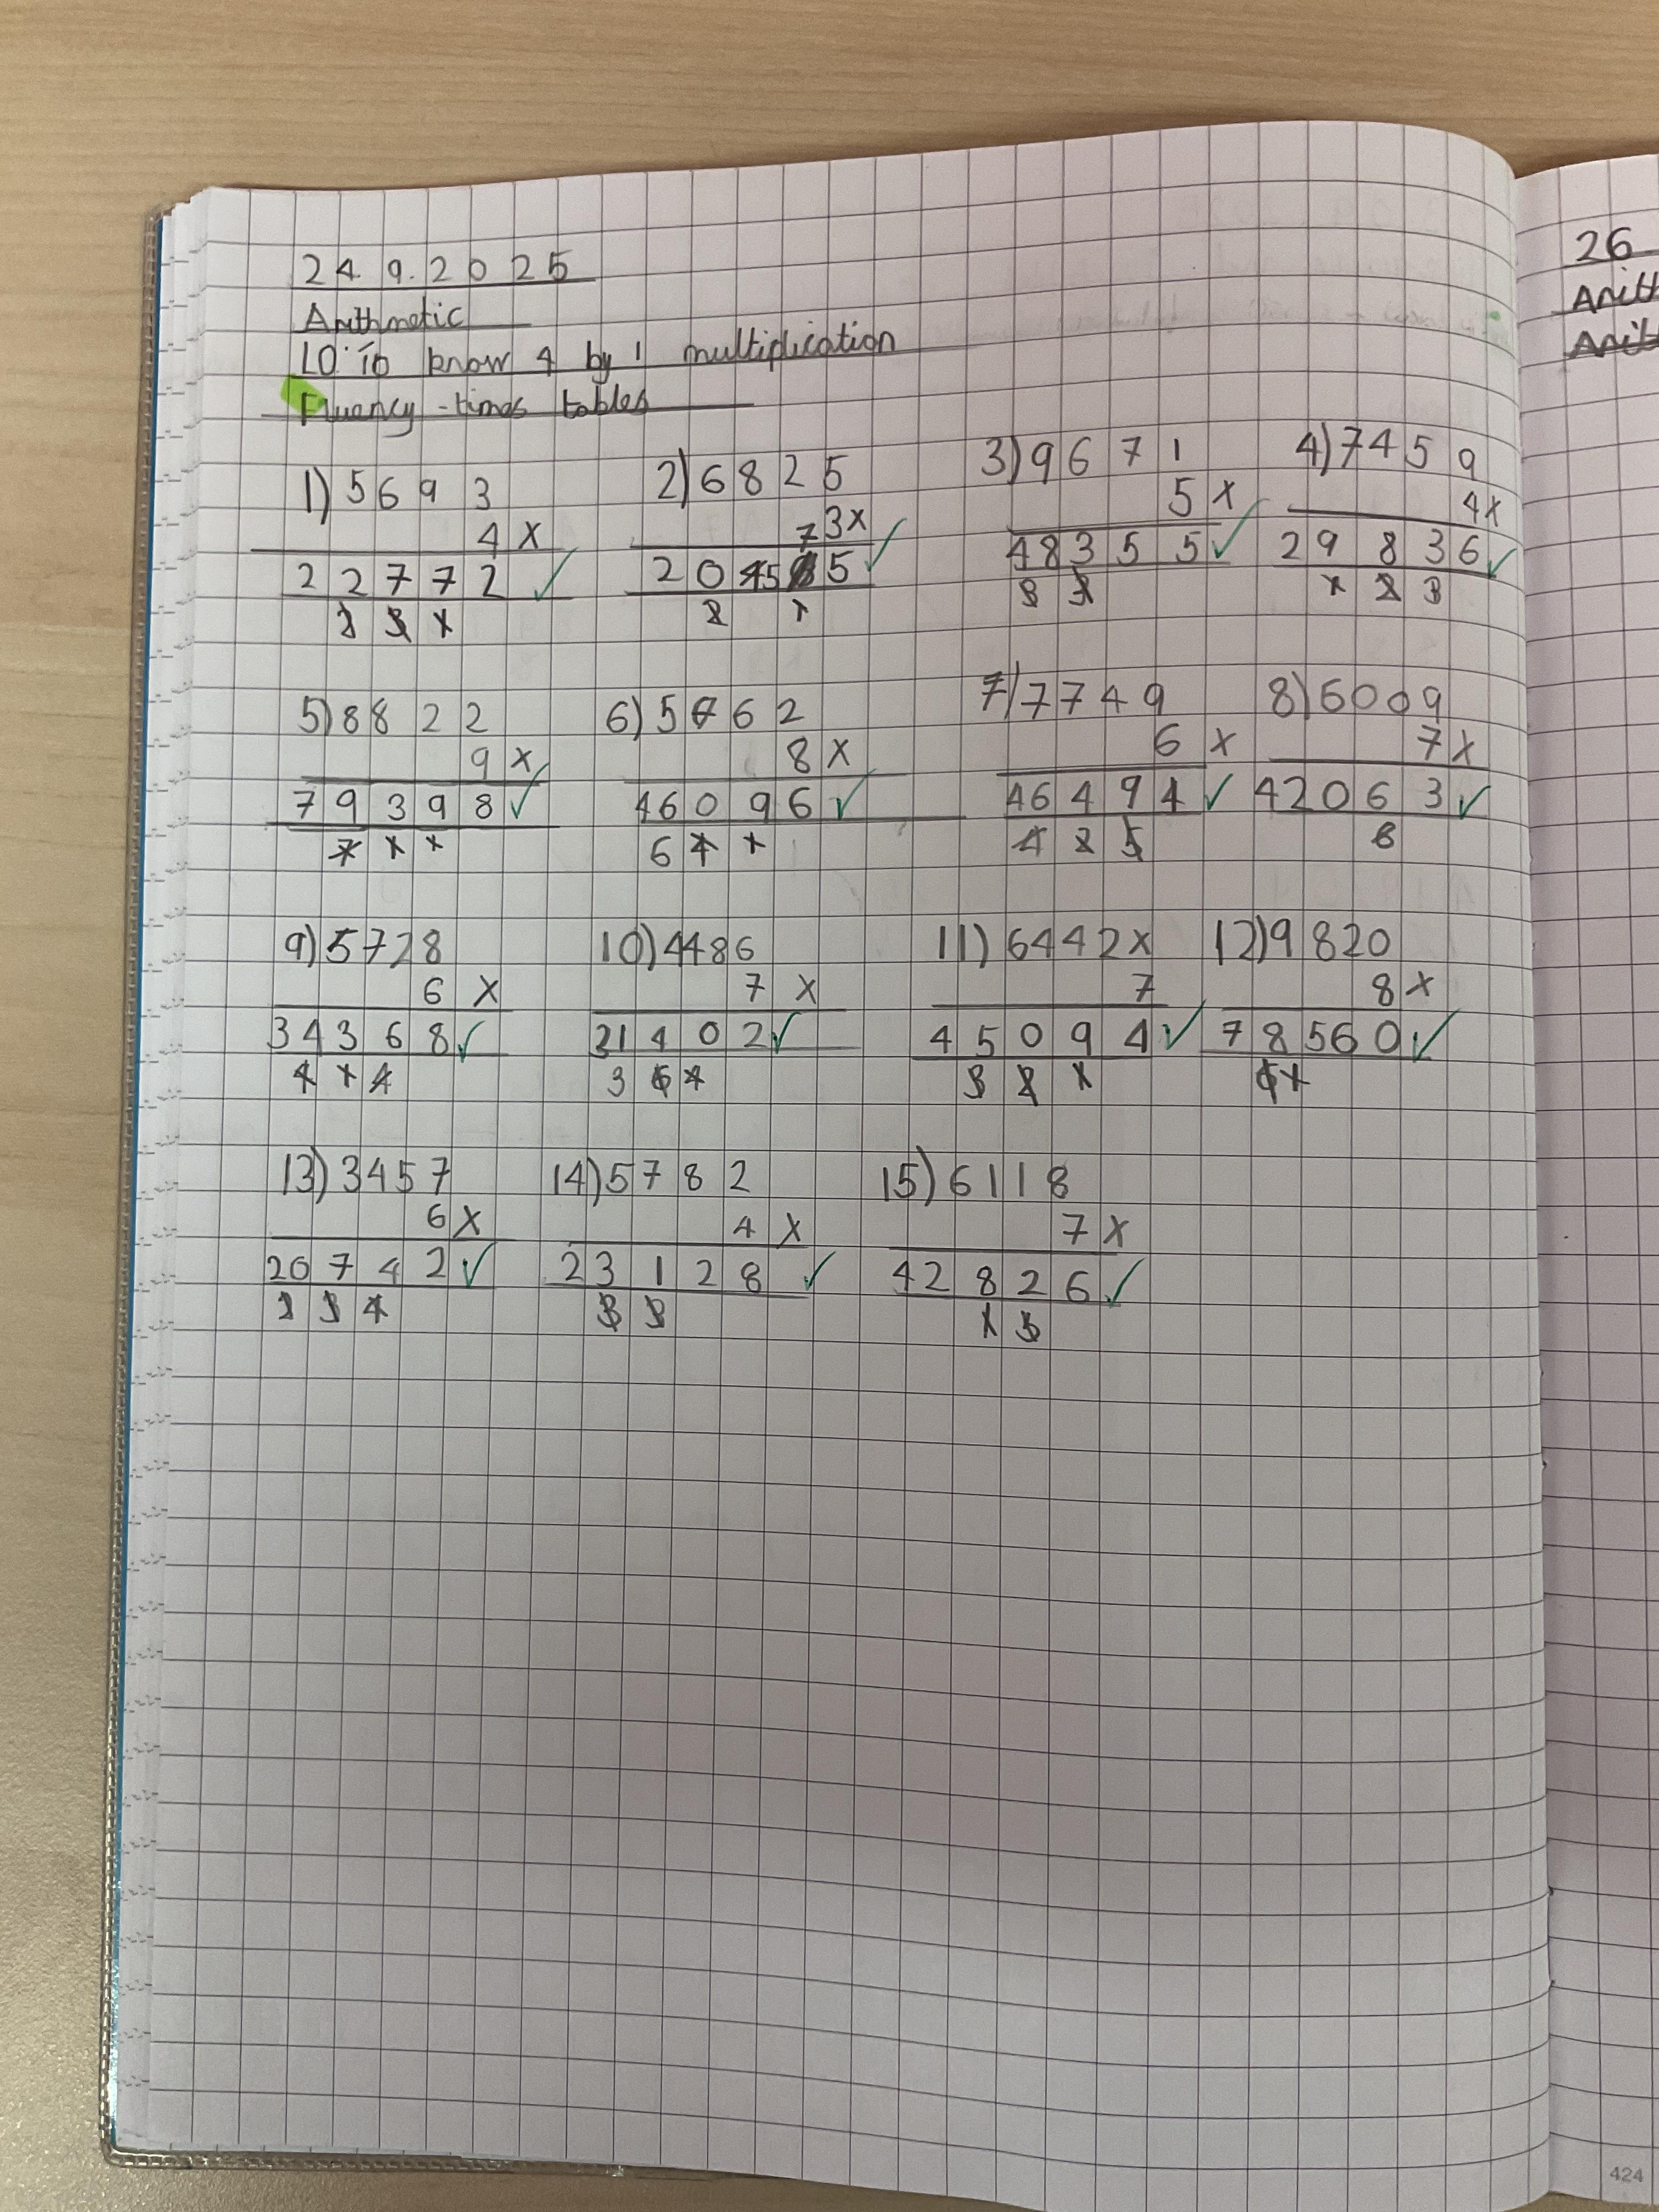 24.9.2025
Arithmetic
LO: To know 4 by 1 multiplication
Fluency - times tables
1) 5693 2) 6825 3) 9671 4) 7459
4x 3x 5x 4x
22772 ✓ 20475 ✓ 48355 ✓ 29836 ✓
2 3 1 2 1 3 3 1 2 3
5) 8822 6) 5762 7) 7749 8) 6009
9x 8x 6x 7x
79398 ✓ 46096 ✓ 46494 ✓ 42063 ✓
7 1 1 6 4 1 4 2 5 6
9) 5728 10) 4486 11) 6442x 12) 9820
6x 7x 7 8x
34368 ✓ 31402 ✓ 45094 ✓ 78560 ✓
4 1 4 3 6 4 3 2 1 6 1
13) 3457 14) 5782 15) 6118
6x 4x 7x
20742 ✓ 23128 ✓ 42826 ✓
2 3 4 3 3 1 5
26
424